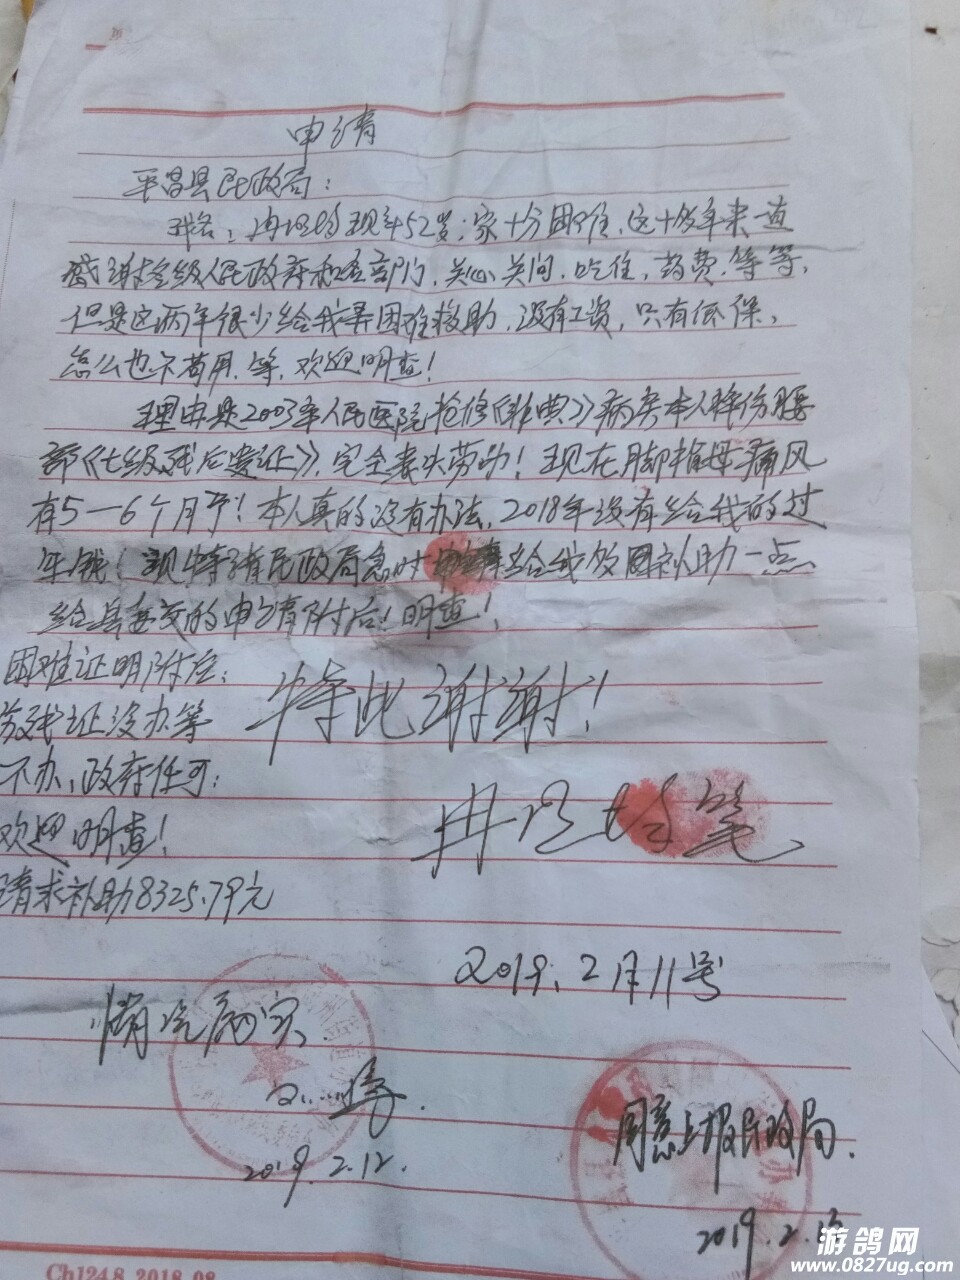 申请
平昌县民政局：
现年52岁，家十分困难，这十多年来一直
感谢各级人民政府和各部门，关心关问，吃住，药费，等等，
但是这两年很少给我弄困难救助，没有工资，只有低保，
怎么也不够用，等，欢迎明查！
理由是2003年人民医院抢修《非典》病房本人摔伤腰
部《七级残后遗证》，完全丧失劳动！现在脚拇母痛风
有5—6个月了！本人真的没有办法，2018年没有给我的过
年钱！现特请民政局急时给我发困补助一点
给县委交的申请附后！明查！
困难证明附后：
残证没办等
不办，政府任可：
欢迎明查！
特此谢谢！
笔
请求补助8325.79元
2019.2月11号
情况属实
2019.2.12.
同意上报民政局.
2019.2.
Ch124.8 2018.08
游鸽网
www.0827ug.com